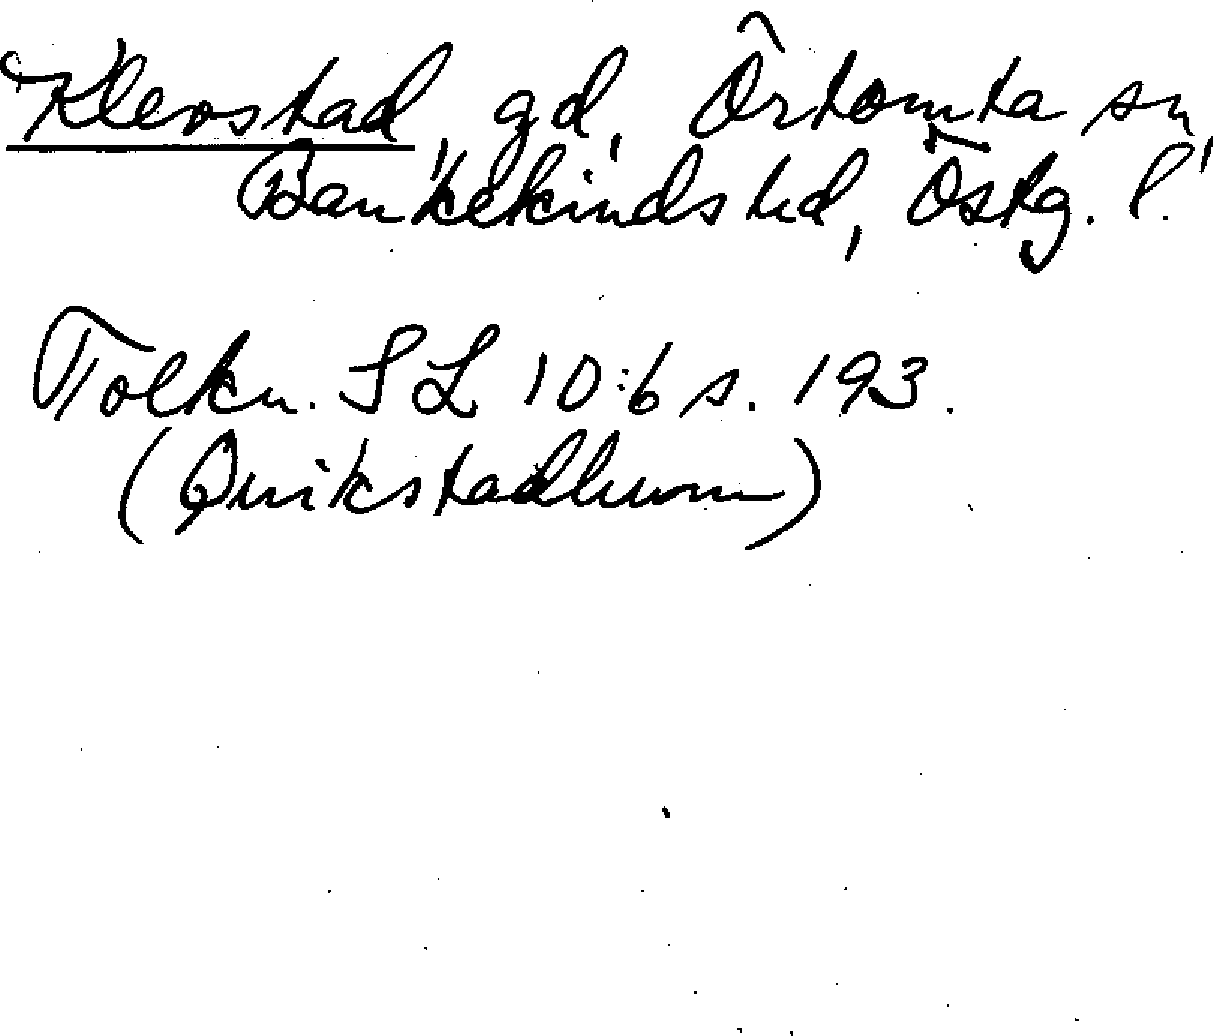 Klevstad, gd, Örtomta sn,
Bankekinds hd, Östg. l.
Tolkn. SL 10:6 s. 193.
(Quikstadhum)